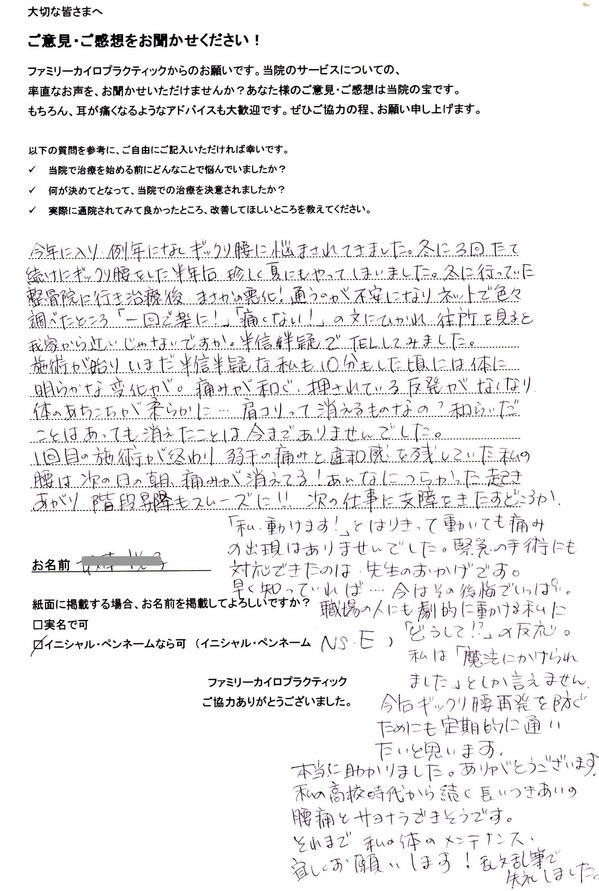 大切な皆さまへ
ご意見・ご感想をお聞かせください！
ファミリーカイロプラクティックからのお願いです。当院のサービスについての、
率直なお声を、お聞かせいただけませんか？あなた様のご意見・ご感想は当院の宝です。
もちろん、耳が痛くなるようなアドバイスも大歓迎です。ぜひご協力の程、お願い申し上げます。
以下の質問を参考に、ご自由にご記入いただければ幸いです。
✓ 当院で治療を始める前にどんなことで悩んでいましたか？
✓ 何が決めてとなって、当院での治療を決意されましたか？
✓ 実際に通院されてみて良かったところ、改善してほしいところを教えてください。
今年に入り、例年になしギックリ腰に悩まされてきました。冬に3回たて
続けにギックリ腰をした半年后 珍しく夏にもやってしまいました。冬に行っていた
整骨院に行き治療後 まさかの悪化！通うのが不安になり ネットで色々
調べたところ「一回で楽に！」「痛くない！」の文にひかれ、住所を見ると
我家から近いじゃないですか。半信半疑でTELしてみました。
施術が始り いまだ半信半疑な私も10分もした頃には体に
明らかな変化が。痛みが和ぐ、押されている反発がなくなり
体のあちこちが柔らかに… 肩コリって消えるものなの？和らいだ
ことはあっても消えたことは今までありませんでした。
1回目の施術が終わり 弱干の痛みと違和感を残していた私の
腰は次の日の朝、痛みが消えてる！あんなにつらかった起き
あがり 階段昇降もスムーズに!! 次の仕事に支障をきたすどころか、
「私、動けます！」とはりきって動いても痛み
の出現はありませんでした。緊急の手術にも
対応できたのは 先生のおかげです。
早く知っていれば… 今はその後悔でいっぱい。
職場の人にも劇的に動ける私に
「どうして!?」の反応。
私は「魔法にかけられ
ました」としか言えません。
今后ギックリ腰再発を防ぐ
ためにも定期的に通い
たいと思います。
本当に助かりました。ありがとうございます。
私の高校時代から続く長いつきあいの
腰痛とサヨナラできそうです。
それまで 私の体のメンテナンス、
宜しくお願いします！乱文乱筆で
失礼しました。
お名前
紙面に掲載する場合、お名前を掲載してよろしいですか？
□実名で可
☑イニシャル・ペンネームなら可（イニシャル・ペンネーム NS.E ）
ファミリーカイロプラクティック
ご協力ありがとうございました。